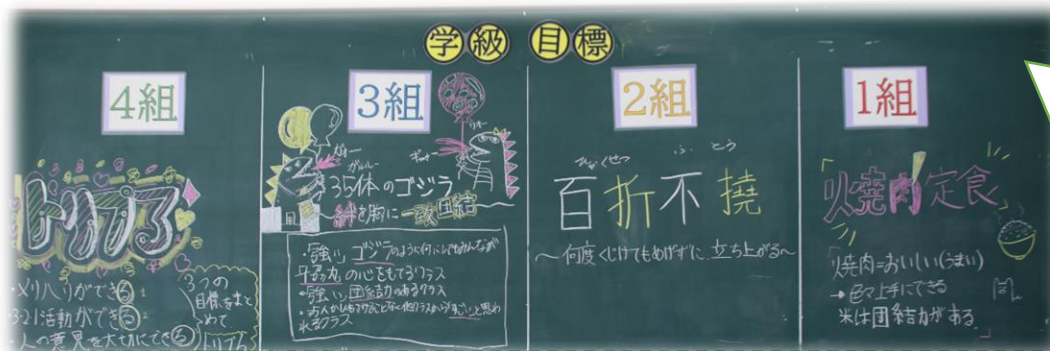 学級目標
4組
トリプるる
・メリハリができる
・3・2・1活動ができる
・人の意見を大切にできる
3つの
目標をまと
めて
トリプるる
3組
ガルルー
35体のゴジラ
絆を胸に一致団結
・強いゴジラのように何に
協力の心をもてるクラス
・強い団結力のあるクラス
すごいと思わ
れるクラス
2組
ひゃくせつ ふ とう
百折不撓
~何度くじけてもめげずに立ち上がる~
1組
「焼肉定食」
「焼肉=おいしい(うまい)
→色々上手にできる
米は団結力がある」